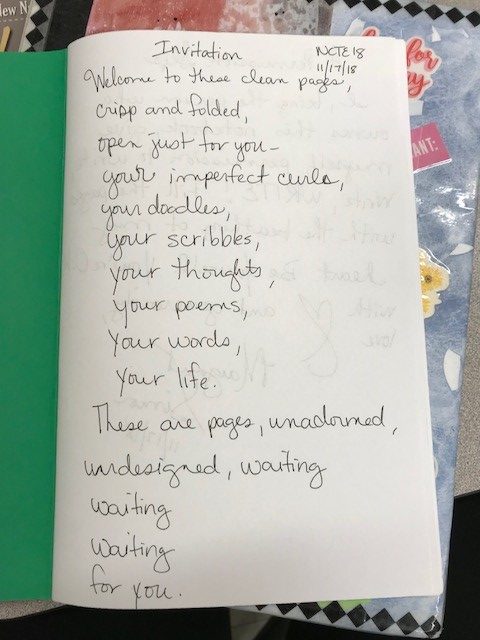 Invitation
NCTE 18
11/17/18
Welcome to these clean pages,
crisp and folded,
open just for you-
your imperfect curls,
your doodles,
your scribbles,
your thoughts,
your poems,
your words,
your life.
These are pages, unadorned,
undesigned, waiting
waiting
waiting
for you.